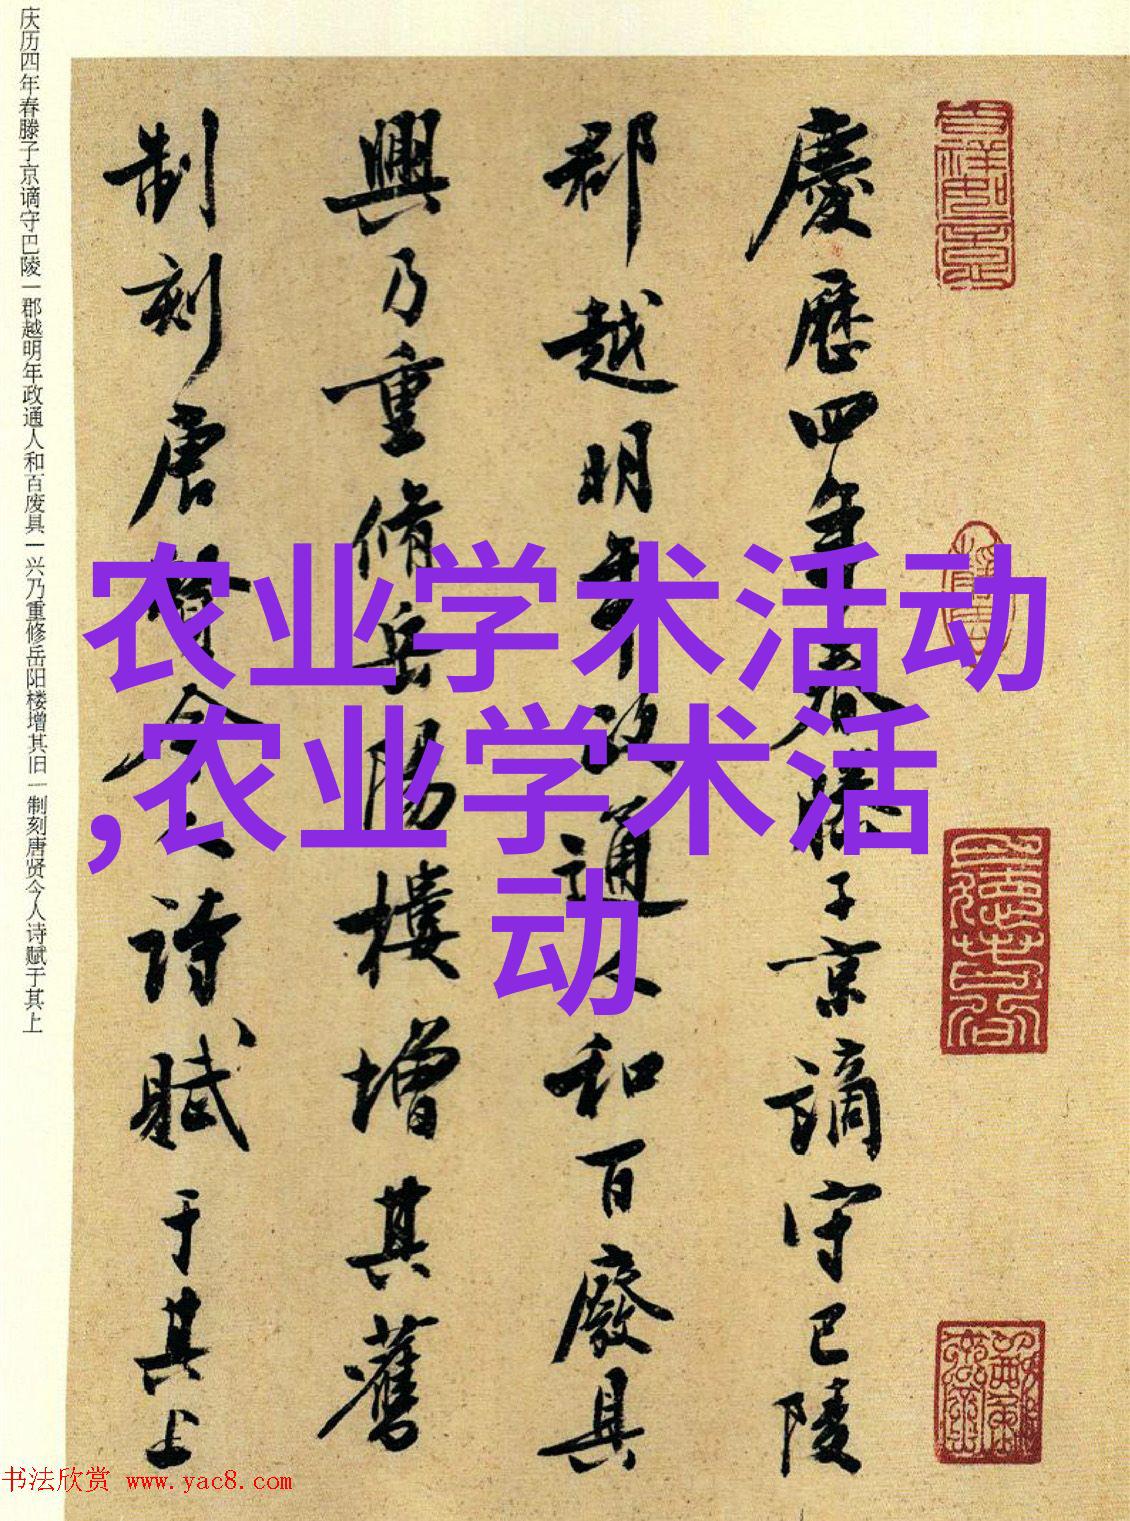 慶歷四年春滕子京謫守巴陵
郡越明年政通人和百廢具
興乃重脩岳陽樓增其舊
制刻唐賢今人詩賦于其上
庆历四年春滕子京谪守巴陵一郡越明年政通人和百废具一兴乃重修岳阳楼增其旧一制刻唐贤今人诗赋于其上
农业学术活动
,农业学术活
动
书法欣赏 www.yac8.com